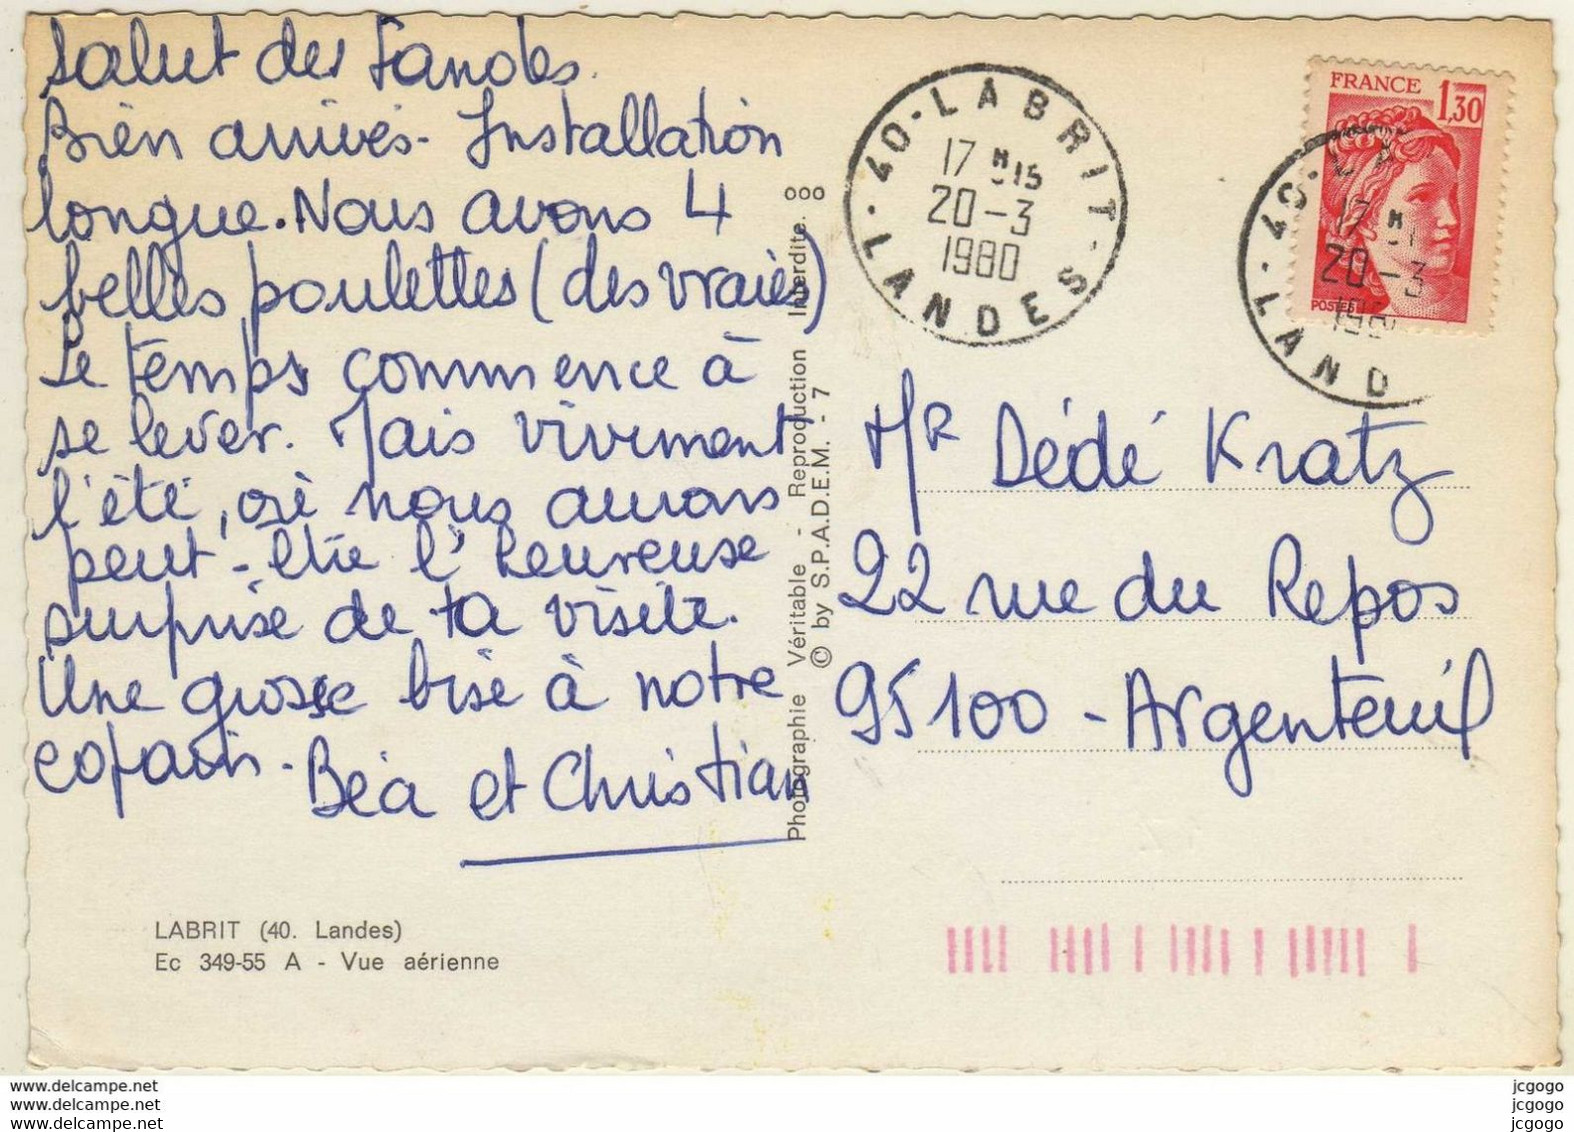 Salut des Landes.
Bien arrivés - Installation
longue. Nous avons 4
belles poulettes (des vraies)
Le temps commence à
se lever. Mais vivement
l'été, où nous aurons
peut-être l'heureuse
surprise de ta visite.
Une grosse bise à notre
copain - Béa et Christian
LABRIT (40. Landes)
Ec 349-55 A - Vue aérienne
Photographie Véritable - Reproduction Interdite. 000
© by S.P.A.D.E.M. - 7
40 - LABRIT - LANDES
17 H 15
20 - 3
1980
FRANCE
1,30
POSTES
17 H
20 - 3
198
LAND
Mr Dédé Kratz
22 rue du Repos
95100 - Argenteuil
www.delcampe.net
www.delcampe.net
www.delcampe.net
jcgogo
jcgogo
jcgogo